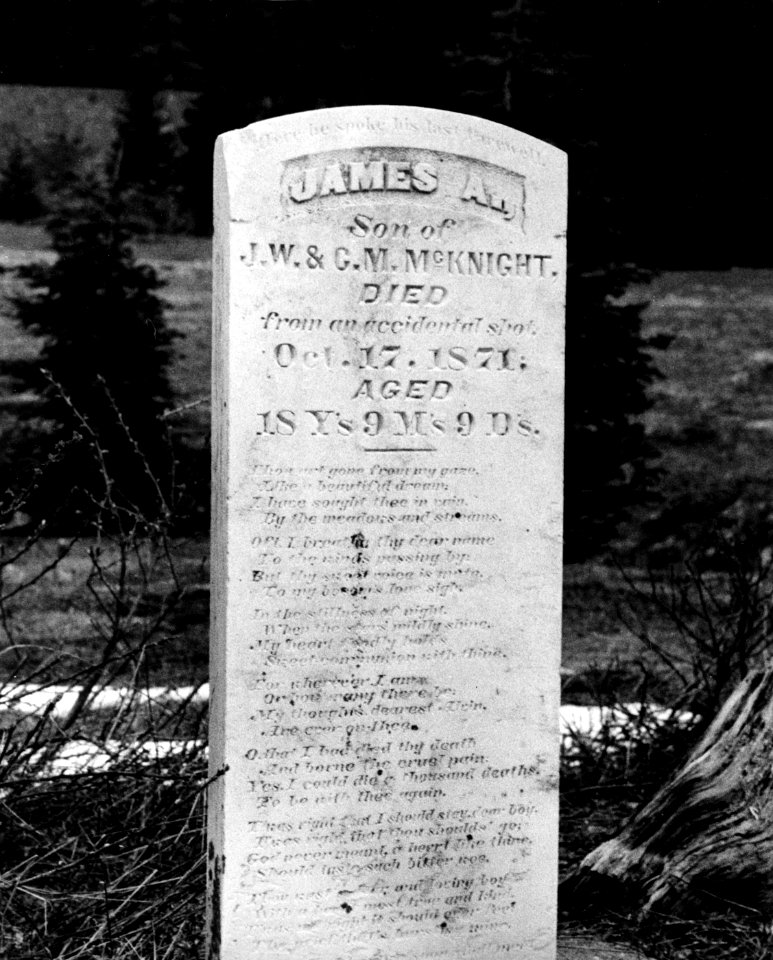 here he spoke his last farewell
JAMES A.,
Son of
J.W. & C.M. McKNIGHT.
DIED
from an accidental shot.
Oct. 17. 1871;
AGED
18 Y's 9 M's 9 D's.
Thou art gone from my gaze,
Like a beautiful dream;
I have sought thee in vain,
By the meadows and streams.
Oft I breathe thy dear name
To the winds passing by;
But thy sweet voice is mute,
To my bosom's lone sigh.
In the stillness of night,
When the stars mildly shine,
My heart fondly holds
Sweet communion with thine.
For wherever I am,
Or how many there be;
My thoughts dearest
Are ever on thee.
O, that I had died thy death
And borne the cruel pain;
Yes, I could die a thousand deaths,
To be with thee again.
'Twas right that I should stay, dear boy,
'Twas right, that thou should'st go;
God never meant, a heart like thine,
Should taste such bitter woe.
and loving boy
With a most true and
it should ever